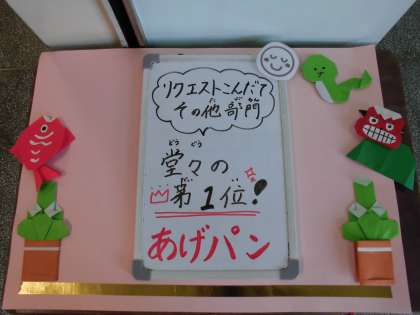 リクエストこんだて
その他部門
どう どう
堂々の
だい い
第1位!
あげパン